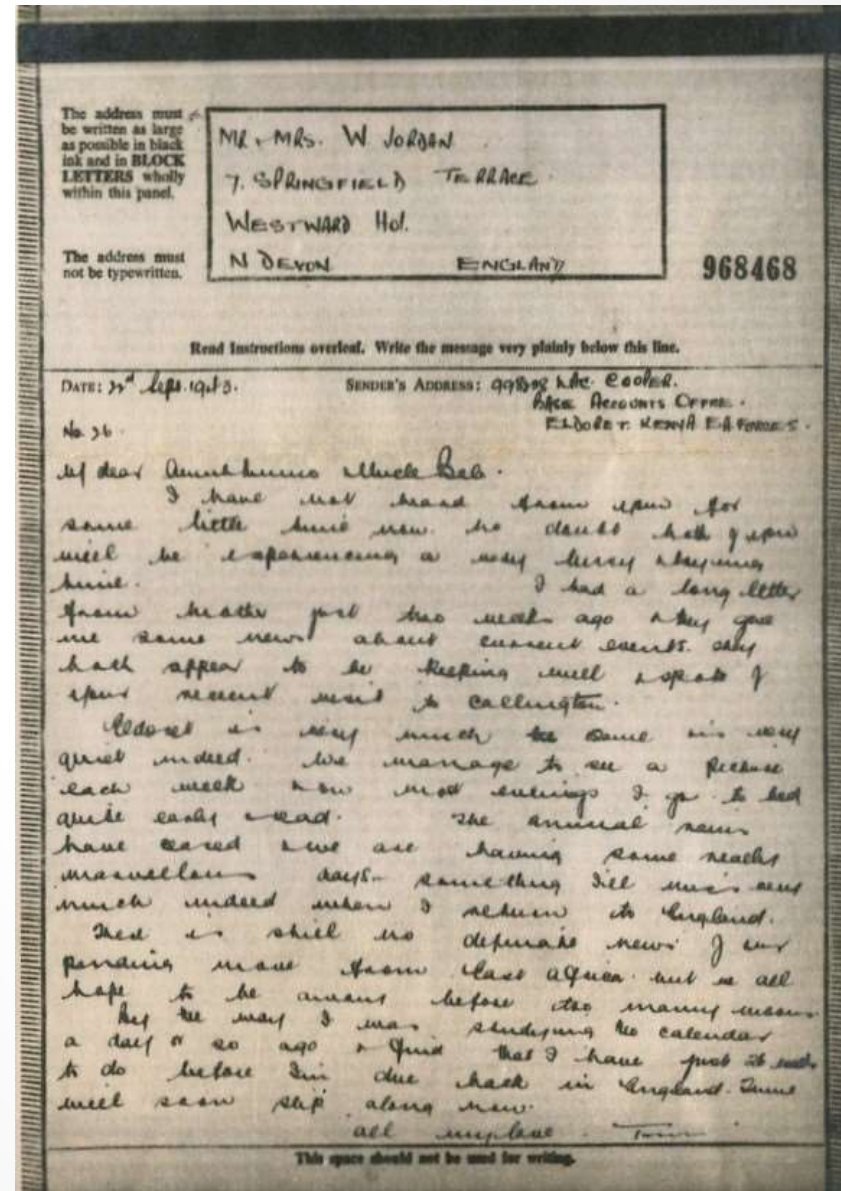 The address must
be written as large
as possible in black
ink and in BLOCK
LETTERS wholly
within this panel.
The address must
not be typewritten.
MR & MRS. W JORDAN
7. SPRINGFIELD TERRACE
WESTWARD HO!.
N DEVON ENGLAND
968468
Read Instructions overleaf. Write the message very plainly below this line.
DATE: 22nd Sept. 1943. SENDER'S ADDRESS: LAC. COOPER.
BASE ACCOUNTS OFFICE.
ELDORET. KENYA E.A FORCES.
No 26.
My dear Aunt & Uncle Bob.
I have not heard from you for
some little time now. No doubt both of you
will be experiencing a very busy & trying
time. I had a long letter
from Mother just two weeks ago & they gave
me some news about current events. They
both appear to be keeping well & speak of
your recent visit to Callington.
Eldoret is very much the same & is very
quiet indeed. We manage to see a picture
each week now most evenings I go to bed
quite early & read. The annual rains
have ceased & we are having some really
marvellous days - something I'll miss very
much indeed when I return to England.
There is still no definate news of our
pending move from East Africa but we all
hope to be away before too many moons.
By the way I was studying the calendar
a day or so ago & find that I have just
to do before I'm due back in England. Time
will soon slip along now.
All my love.
This space should not be used for writing.